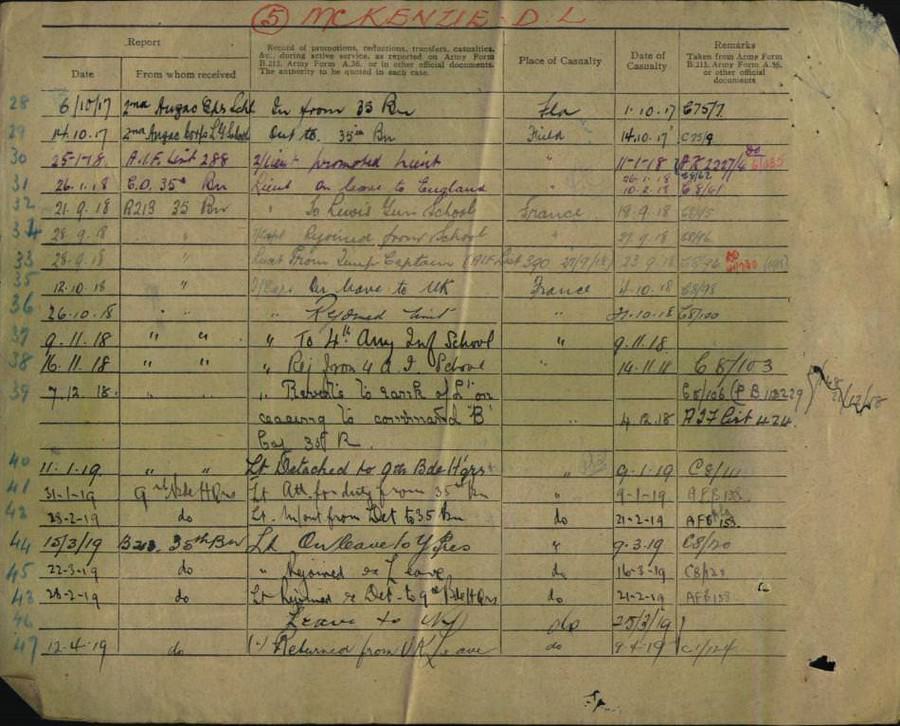 ⑤ MCKENZIE - D. L
Report
Record of promotions, reductions, transfers, casualties, &c., during active service, as reported on Army Form B.213, Army Form A.36, or in other official documents. The authority to be quoted in each case.
Place of Casualty
Date of Casualty
Remarks
Taken from Army Form B.213, Army Form A.36, or other official documents
Date
From whom received
28 6/10/17 2nd Anzac In from 35 Bn 1.10.17 C75/7
29 14.10.17 2nd Anzac Corps L.G. School Out to 35th Bn Field 14.10.17 C75/9
30 25-1-18 A.I.F. List 288 2/Lieut promoted Lieut " 11-1-18
31 26.1.18 C.O. 35th Bn Lieut On leave to England " 26-1-18 10-2-18 C8/61
32 21.9.18 B213 35 Bn " To Lewis Gun School France 18.9.18
34 28.9.18 " Rejoined from School " 27.9.18
33 28.9.18 " Lieut From Temp Captain (AIF List 390 27/9/18) 23.9.18
35 12.10.18 " On leave to UK France 4.10.18 C8/98
36 26.10.18 " " Rejoined Unit " 10.18 C8/100
37 9.11.18 " " " To 4th Army Inf School " 9.11.18
38 16.11.18 " " " Rej from 4 A. I. School " 14.11.18 C8/103
39 7.12.18 " " " Reverts to rank of Lt on C8/106
ceasing to command 'B' " 4.12.18 AIF List 424
Coy 35th
40 11-1-19 " " Lt Detached to 9th Bde Hqrs " 9-1-19 C8/111
41 31-1-19 9th Bde H Qrs Lt Att. for duty from 35th Bn " 9-1-19 AFB 158
42 28-2-19 do Lt. M/out from Det to 35 Bn do 21-2-19 AFB 158
44 15/3/19 B213. 35th Bn Lt On leave to Ypres " 9.3.19 C8/120
45 22-3-19 do " Rejoined ex Leave do 16-3-19 C8/121
43 28-2-19 do Lt Rejoined ex Det. to 9th Bde H Qrs do 21-2-19 AFB 158
46 Leave to do 25/3/19
47 12-4-19 do Returned from UK Leave do 9-4-19 C1/124